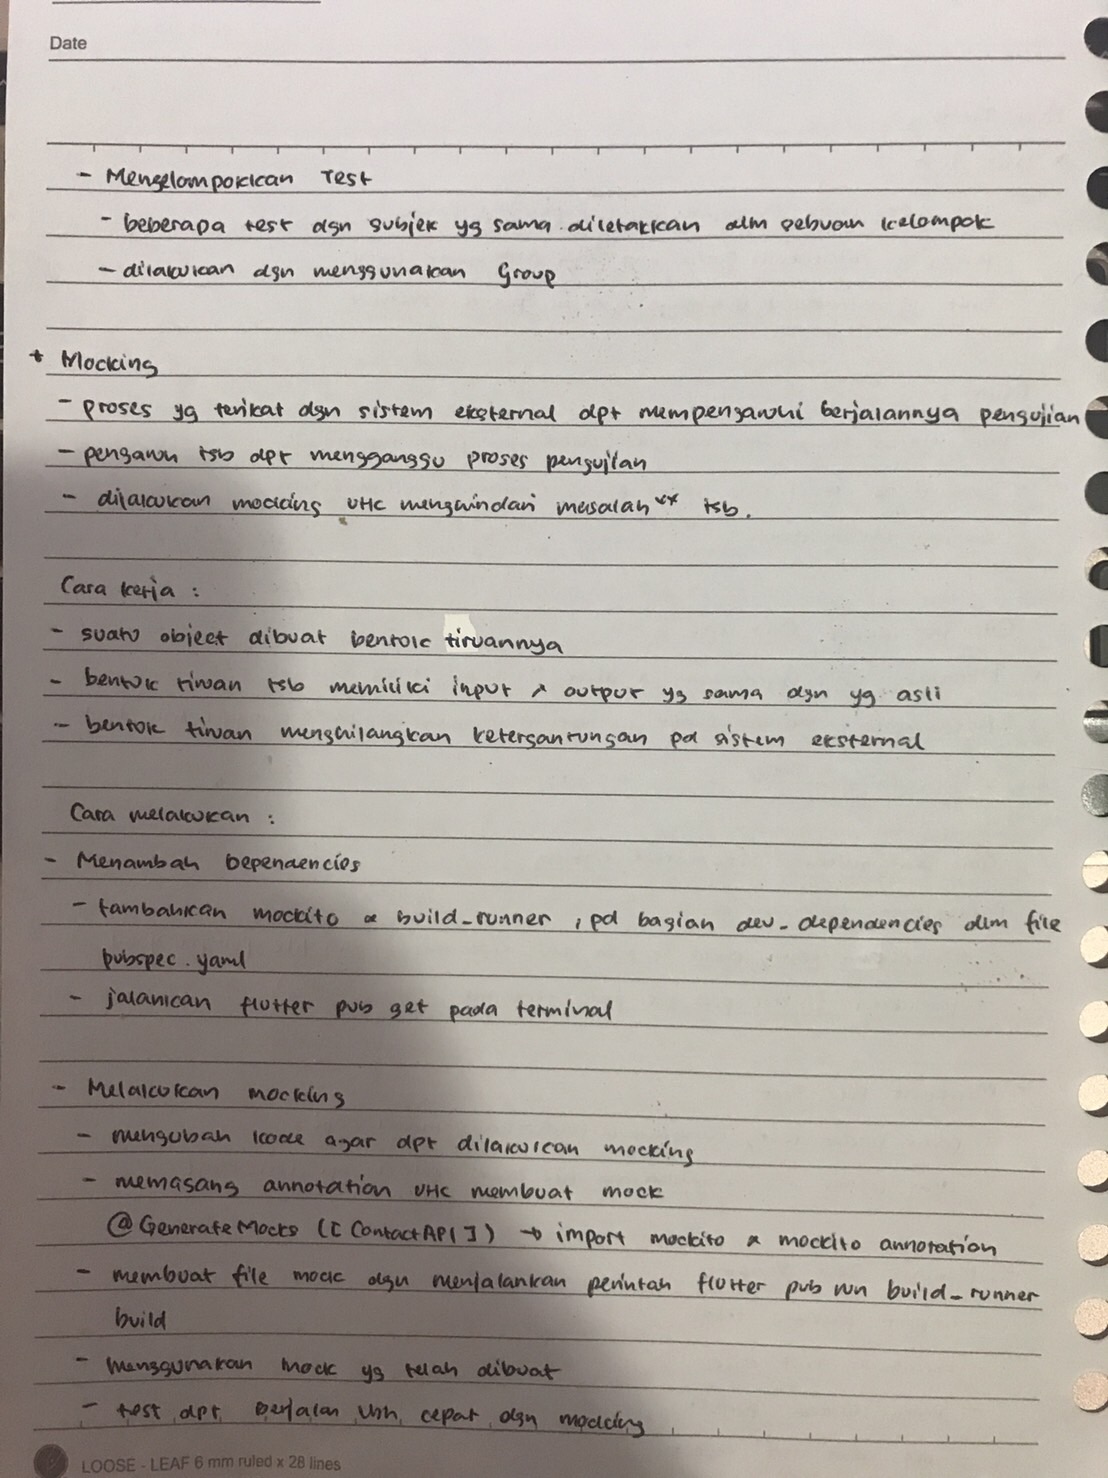 Date
- Mengelompokkan Test
- beberapa test dgn subjek yg sama diletakkan dlm sebuah kelompok
- dilakukan dgn menggunakan Group
* Mocking
- proses yg terikat dgn sistem eksternal dpt mempengaruhi berjalannya pengujian
- pengaruh tsb dpt mengganggu proses pengujian
- dilakukan mocking utk menghindari masalah" tsb.
Cara kerja :
- suatu object dibuat bentuk tiruannya
- bentuk tiruan tsb memiliki input & output yg sama dgn yg asli
- bentuk tiruan menghilangkan ketergantungan pd sistem eksternal
Cara melakukan :
- Menambah Dependencies
- tambahkan mockito & build_runner , pd bagian dev_dependencies dlm file
pubspec.yaml
- jalankan flutter pub get pada terminal
- Melakukan mocking
- mengubah kode agar dpt dilakukan mocking
- memasang annotation utk membuat mock
@GenerateMocks ([ContactAPI]) → import mockito & mockito annotation
- membuat file mock dgn menjalankan perintah flutter pub run build_runner
build
- menggunakan mock yg telah dibuat
- test dpt berjalan lbh cepat dgn mocking
LOOSE - LEAF 6 mm ruled x 28 lines